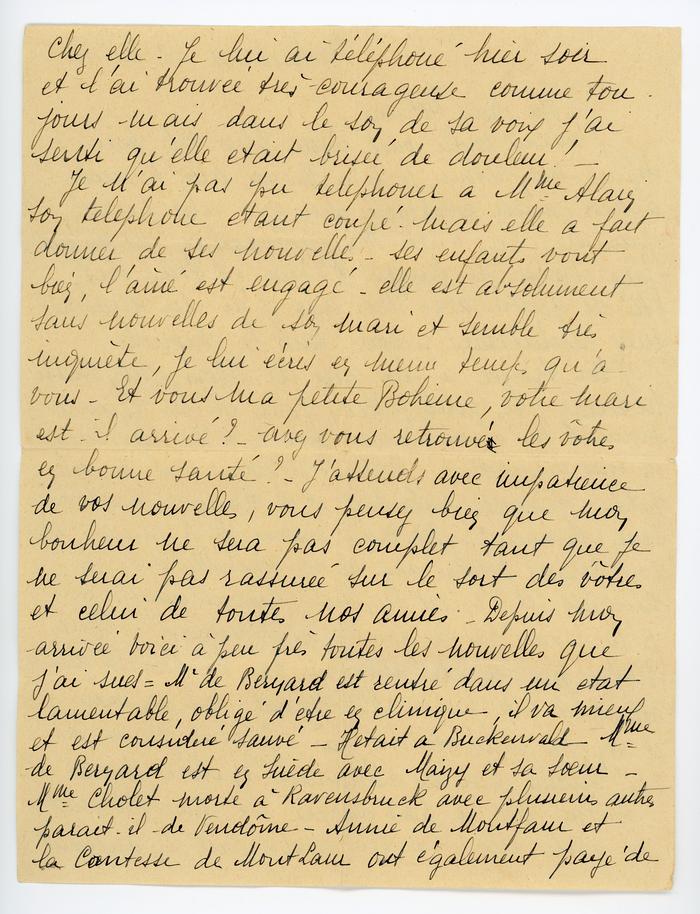 chez elle - Je lui ai téléphoné hier soir
et l'ai trouvée très courageuse comme tou-
jours mais dans le son de sa voix j'ai
senti qu'elle était brisée de douleur! -
Je n'ai pas pu telephoner à Mme
son telephone etant coupé - mais elle a fait
donner de ses nouvelles - ses enfants vont
bien, l'ainé est engagé - elle est absolument
sans nouvelles de son mari et semble très
inquiète, je lui écris en meme temps qu'à
vous - Et vous ma petite Bohème, votre mari
est-il arrivé? - avez vous retrouvé les vôtres
en bonne santé? - J'attends avec impatience
de vos nouvelles, vous pensez bien que mon
bonheur ne sera pas complet tant que je
ne serai pas rassurée sur le sort des vôtres
et celui de toutes nos amies - Depuis mon
arrivée voici à peu près toutes les nouvelles que
j'ai sues = Mr de Beryard est rentré dans un etat
lamentable, obligé d'etre en clinique, il va mieux
et est considéré sauvé - Il etait a Buckenvald Mme
de Beryard est en Suède avec Maizy et sa soeur -
Mme Cholet morte à Ravensbruck avec plusieurs autres
parait-il de Vendôme - Annie de Montfaur et
la Comtesse de MontLaur ont également payé de